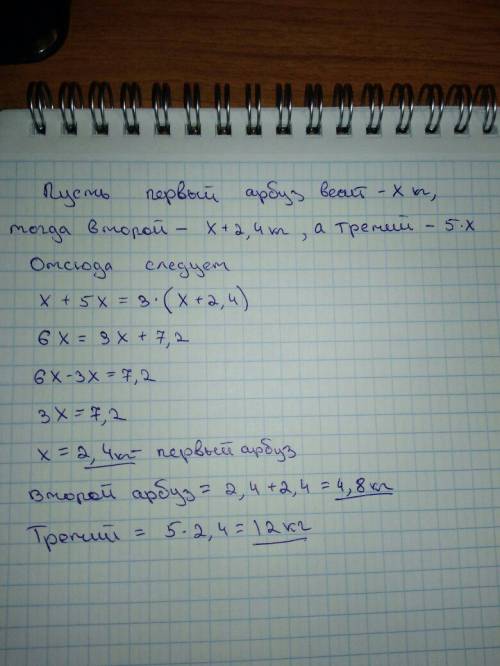 Пусть первый арбуз весит - x кг,
тогда второй - x+2,4 кг, а третий - 5·x
Отсюда следует
x + 5x = 3·(x+2,4)
6x = 3x + 7,2
6x-3x=7,2
3x=7,2
x = 2,4кг- первый арбуз
Второй арбуз = 2,4+2,4=4,8кг
Третий = 5·2,4=12кг